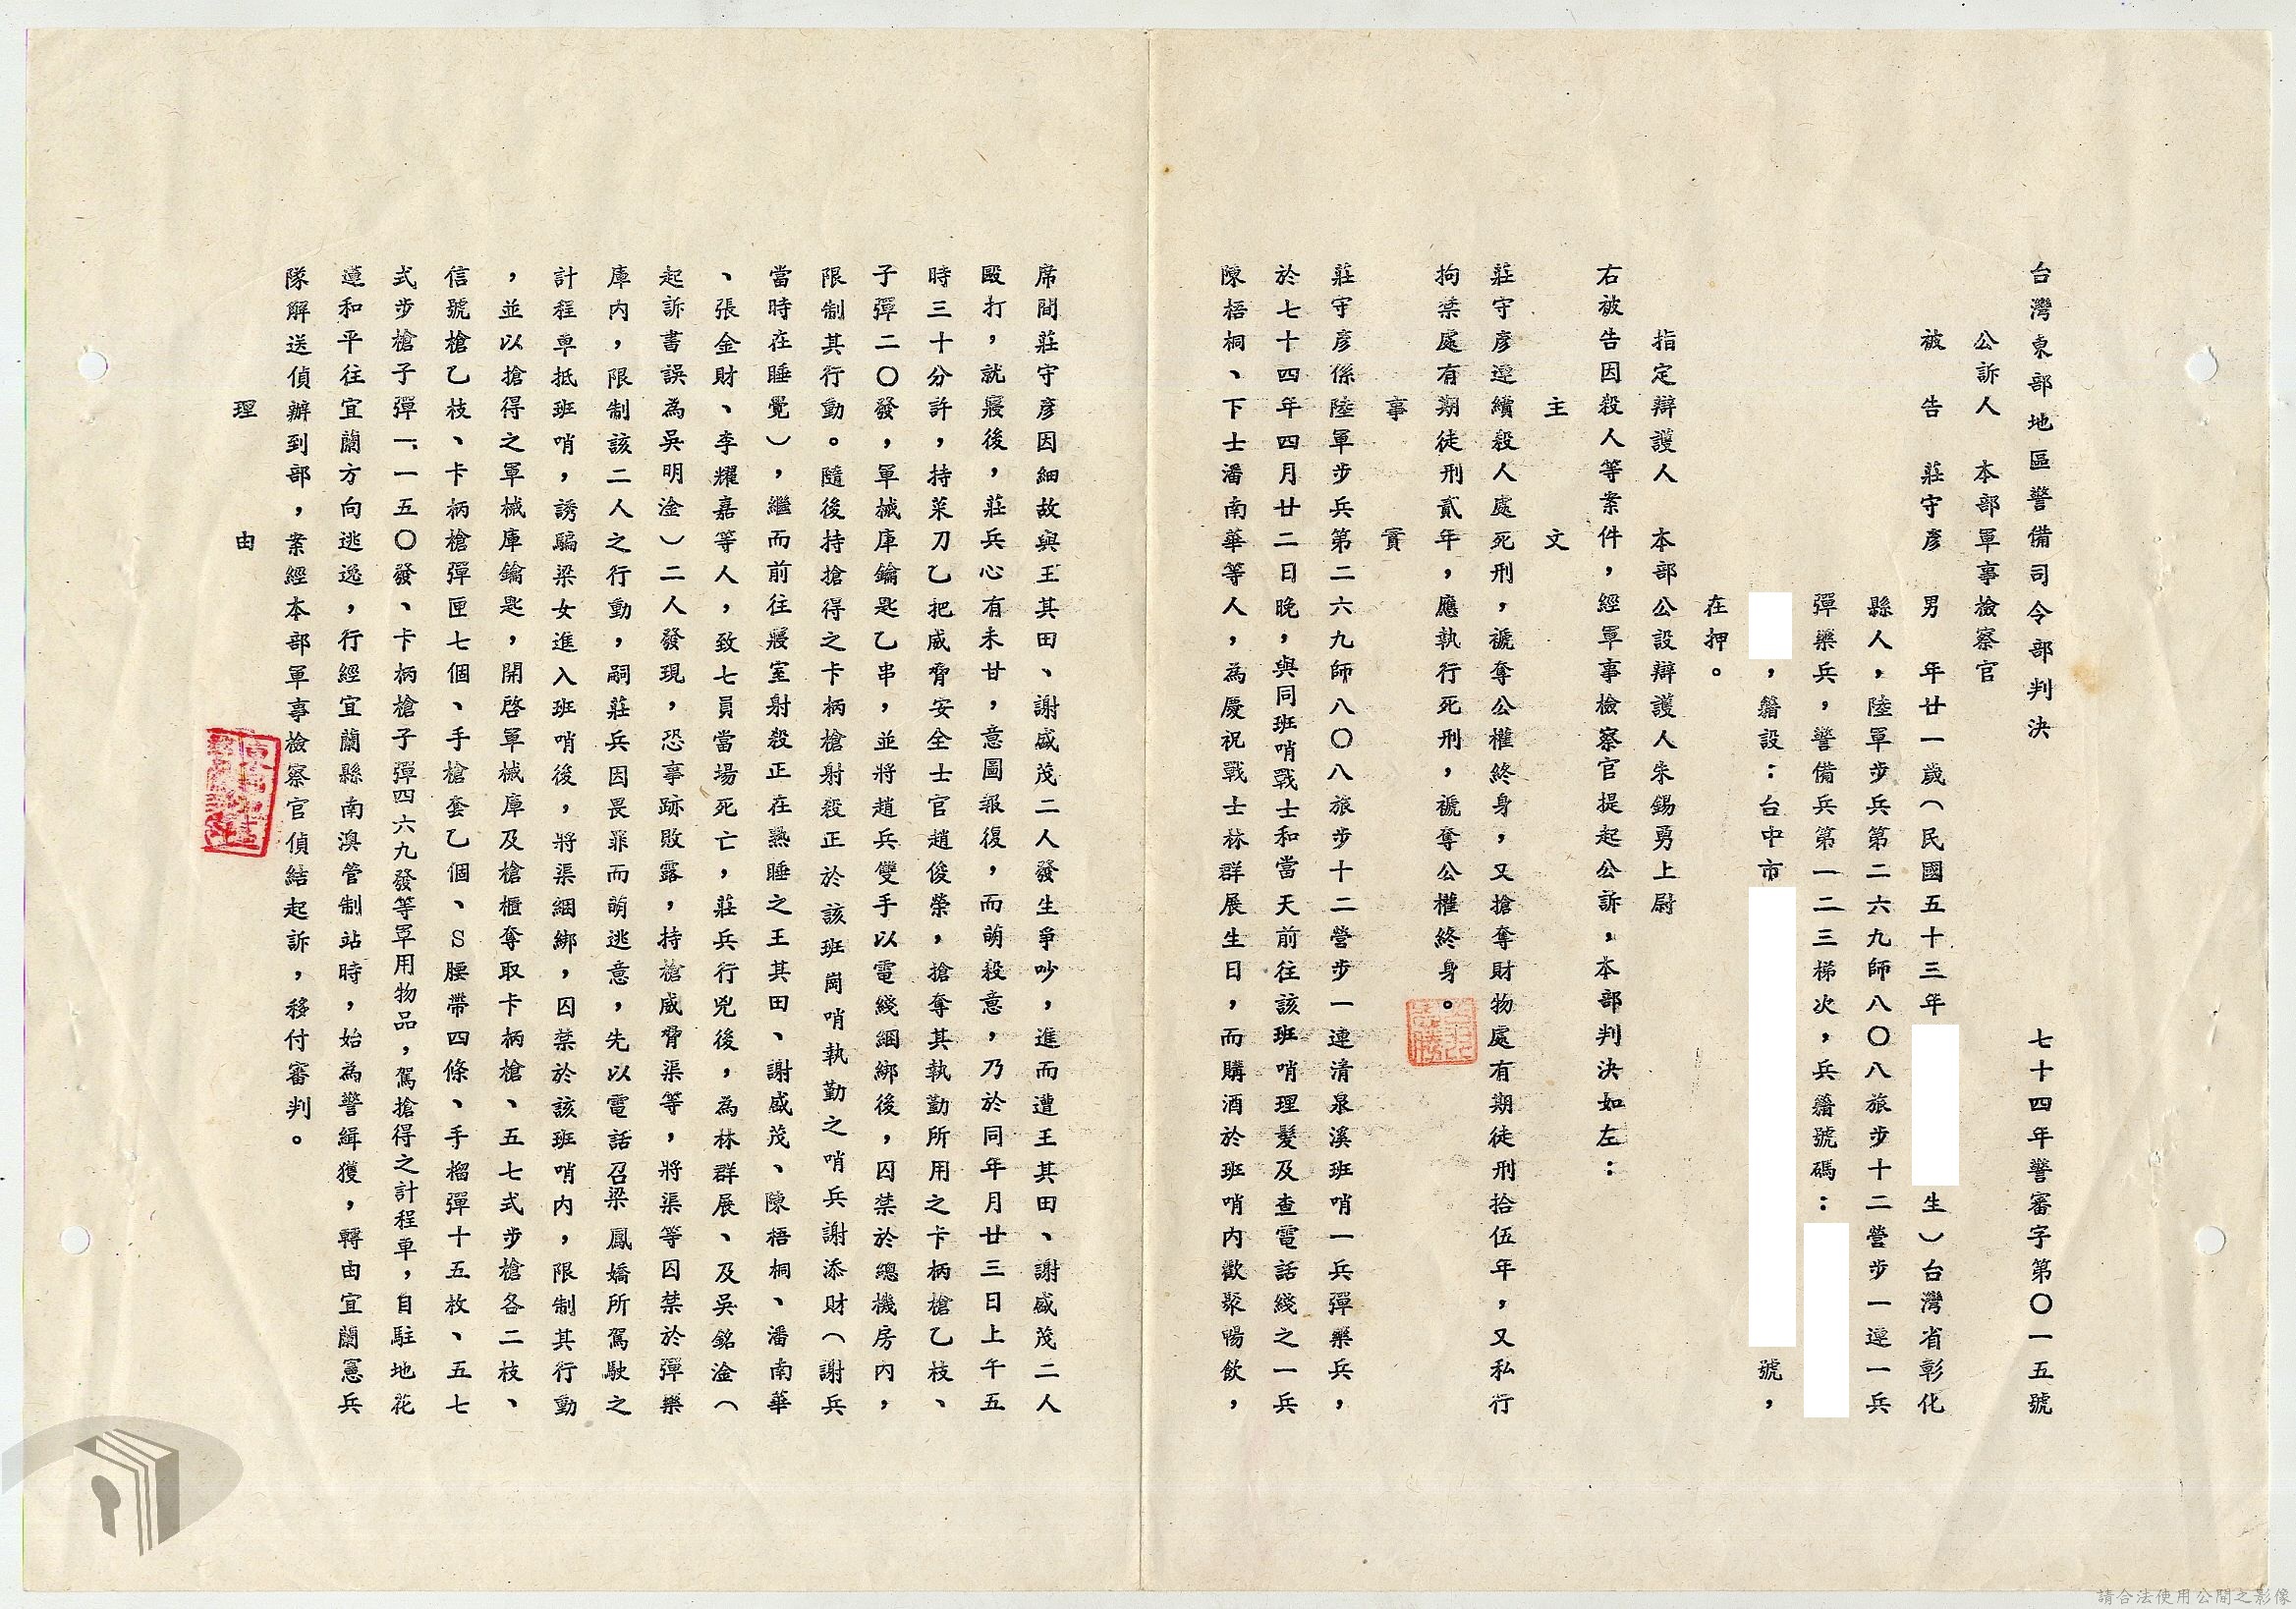 台灣東部地區警備司令部判決　七十四年警審字第〇一五號
公訴人　本部軍事檢察官
被告　莊守彥　男　年廿一歲（民國五十三年　生）台灣省彰化
縣人，陸軍步兵第二六九師八〇八旅步十二營步一連一兵
彈藥兵，警備兵第一二三梯次，兵籍號碼：
，籍設：台中市　號，
在押。
指定辯護人　本部公設辯護人朱錫勇上尉
右被告因殺人等案件，經軍事檢察官提起公訴，本部判決如左：
主文
莊守彥連續殺人處死刑，褫奪公權終身，又搶奪財物處有期徒刑拾伍年，又私行
拘禁處有期徒刑貳年，應執行死刑，褫奪公權終身。
事實
莊守彥係陸軍步兵第二六九師八〇八旅步十二營步一連清泉溪班哨一兵彈藥兵，
於七十四年四月廿二日晚，與同班哨戰士和當天前往該班哨理髮及查電話綫之一兵
陳梧桐、下士潘南華等人，為慶祝戰士林群展生日，而購酒於班哨內歡聚暢飲，
席間莊守彥因細故與王其田、謝盛茂二人發生爭吵，進而遭王其田、謝盛茂二人
毆打，就寢後，莊兵心有未甘，意圖報復，而萌殺意，乃於同年月廿三日上午五
時三十分許，持菜刀乙把威脅安全士官趙俊榮，搶奪其執勤所用之卡柄槍乙枝、
子彈二〇發，軍械庫鑰匙乙串，並將趙兵雙手以電綫綑綁後，囚禁於總機房內，
限制其行動。隨後持搶得之卡柄槍射殺正於該班崗哨執勤之哨兵謝添財（謝兵
當時在睡覺），繼而前往寢室射殺正在熟睡之王其田、謝盛茂、陳梧桐、潘南華
、張金財、李耀嘉等人，致七員當場死亡，莊兵行兇後，為林群展、及吳銘淦（
起訴書誤為吳明淦）二人發現，恐事跡敗露，持槍威脅渠等，將渠等囚禁於彈藥
庫內，限制該二人之行動，嗣莊兵因畏罪而萌逃意，先以電話召梁鳳嬌所駕駛之
計程車抵班哨，誘騙梁女進入班哨後，將渠綑綁，囚禁於該班哨內，限制其行動
，並以搶得之軍械庫鑰匙，開啓軍械庫及槍櫃奪取卡柄槍、五七式步槍各二枝、
信號槍乙枝、卡柄槍彈匣七個、手槍套乙個、S腰帶四條、手榴彈十五枚、五七
式步槍子彈一、一五〇發、卡柄槍子彈四六九發等軍用物品，駕搶得之計程車，自駐地花
蓮和平往宜蘭方向逃逸，行經宜蘭縣南澳管制站時，始為警緝獲，轉由宜蘭憲兵
隊解送偵辦到部，案經本部軍事檢察官偵結起訴，移付審判。
理由
請合法使用公開之影像